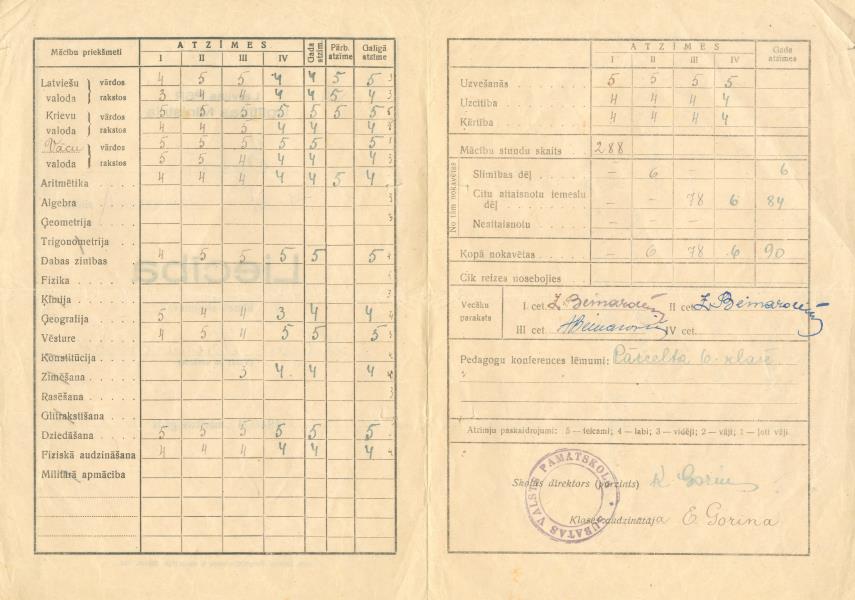 Mācību priekšmeti
ATZĪMES
I II III IV
Gada atzīm.
Pārb. atzīme
Galīgā atzīme
Latviešu valoda
vārdos 4 5 5 4 4 5 5
rakstos 3 4 4 4 4 5 4
Krievu valoda
vārdos 5 5 5 5 5 5 5
rakstos 4 4 5 4 4 4
Vācu valoda
vārdos 5 5 5 5 5 5
rakstos 5 5 4 4 4 4
Aritmētika 4 4 4 4 4 5 4
Algebra
Ģeometrija
Trigonometrija
Dabas zinības 4 5 5 5 5 5
Fizika
Ķīmija
Ģeografija 5 4 4 3 4 4
Vēsture 4 5 4 5 5 5
Konstitūcija
Zīmēšana 3 4 4 4
Rasēšana
Glītrakstīšana
Dziedāšana 5 5 5 5 5 5
Fiziskā audzināšana 4 4 4 4 4 4
Militārā apmācība
ATZĪMES
I II III IV
Gada atzīmes
Uzvešanās 5 5 5 5
Uzcītība 4 4 4 4
Kārtība 4 4 4 4
Mācību stundu skaits 288
No tām nokavētas
Slimības dēļ — 6 — — 6
Citu attaisnotu iemeslu dēļ — — 78 6 84
Neattaisnotu — — —
Kopā nokavētas — 6 78 6 90
Cik reizes nosebojies
Vecāku paraksts
I cet. II cet.
III cet. IV cet.
Pedagogu konferences lēmumi: Pārcelta 6. klasē
Atzīmju paskaidrojumi: 5 — teicami; 4 — labi; 3 — vidēji; 2 — vāji; 1 — ļoti vāji
Skolas direktors (pārzinis)
Klases audzinātāja E. Goriņa
SUBATAS VALSTS PAMATSKOLA